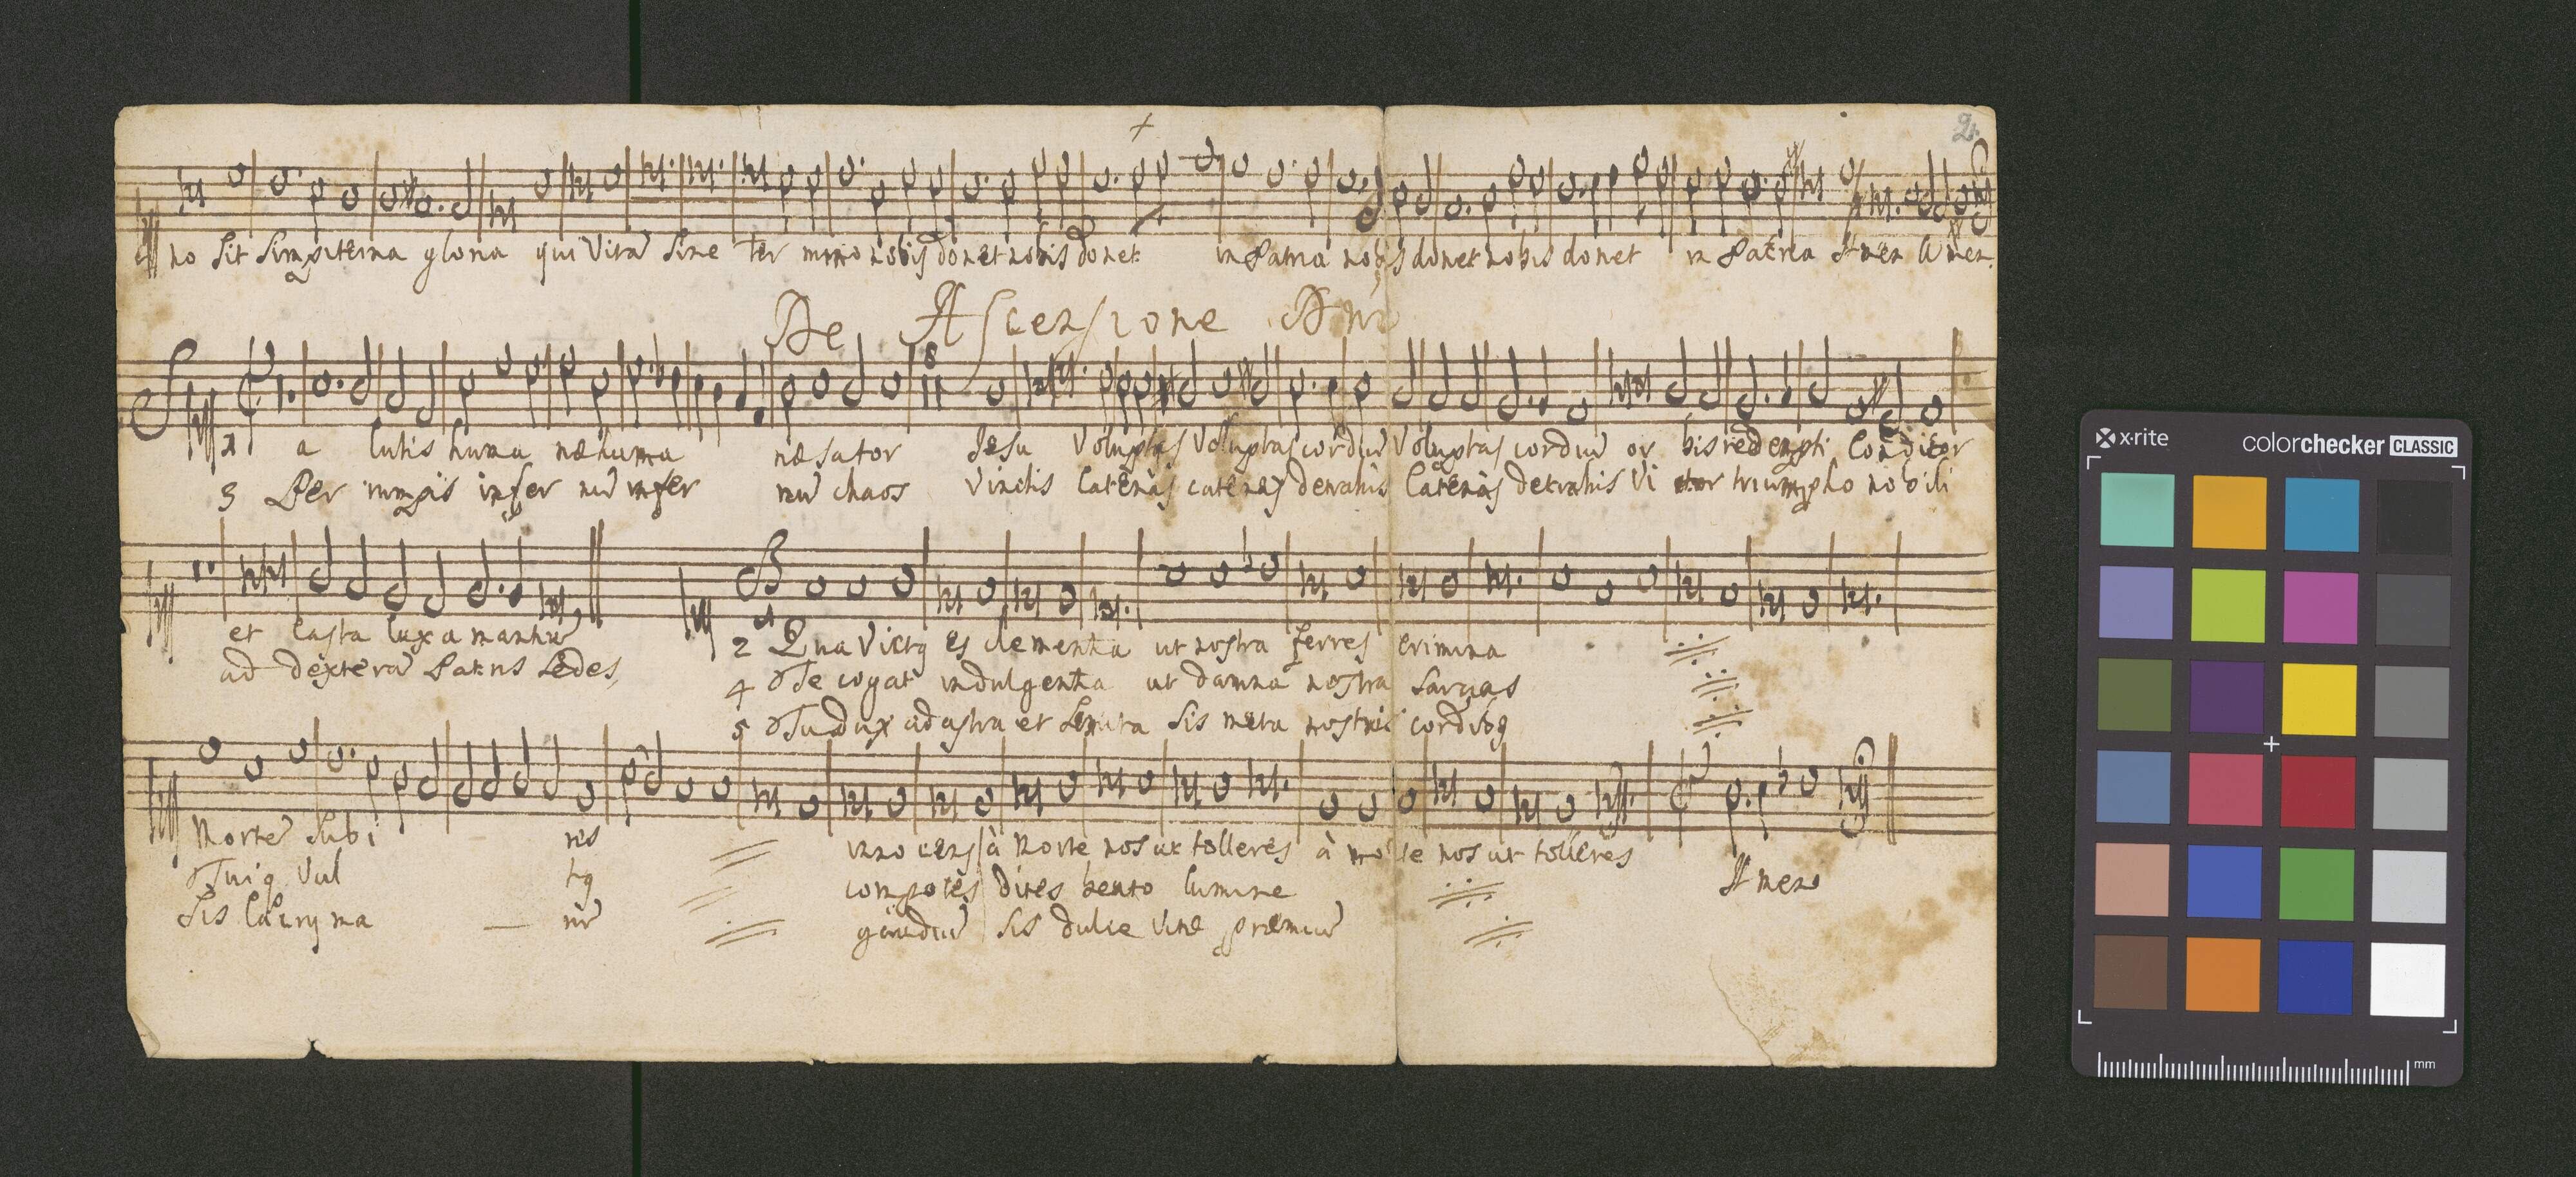 2.
no sit sempiterna gloria qui vitã sine ter mino nobis donet nobis donet in Patria nobis donet nobis donet in Patria Amen Amen.
De Ascensione Dni
8
1 Sa lutis huma næ huma næ sator Jesu Voluptas Voluptas cordiũ Voluptas cordiũ or bis redempti Conditor
3 Per rumpis infer nũ infer nũ chaos Vinctis Catenas catenas detrahis Catenas detrahis Vi ctor triumpho nobili
et casta lux amantiũ
ad dexterã Patris Sedes,
2 Qua Victq es clementia ut nostra ferres crimina
4 Te cogat indulgentia ut damna nostra Sarcias
5 Tu dux ad astra et Semita Sis meta nostris cordibq
Mortẽ Subi res innocens à Morte nos ut tolleres à morte nos ut tolleres
Tuiq Vul tq compotes dites beato lumine
Amen
Sis Lacryma nũ gaudiũ Sis dulce Vitæ præmiũ
x·rite colorchecker CLASSIC
mm